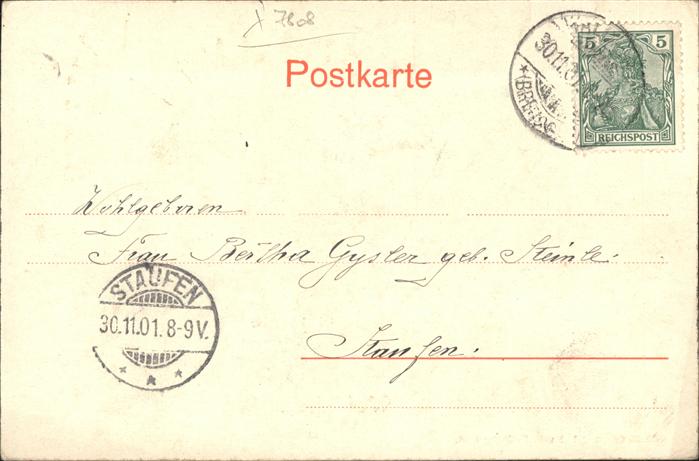 x 7808
Postkarte
30.11.01.
5 5
REICHSPOST
Wohlgeboren
Frau Bertha Gysler geb. Steinle.
STAUFEN
30.11.01. 8-9V.
Staufen.